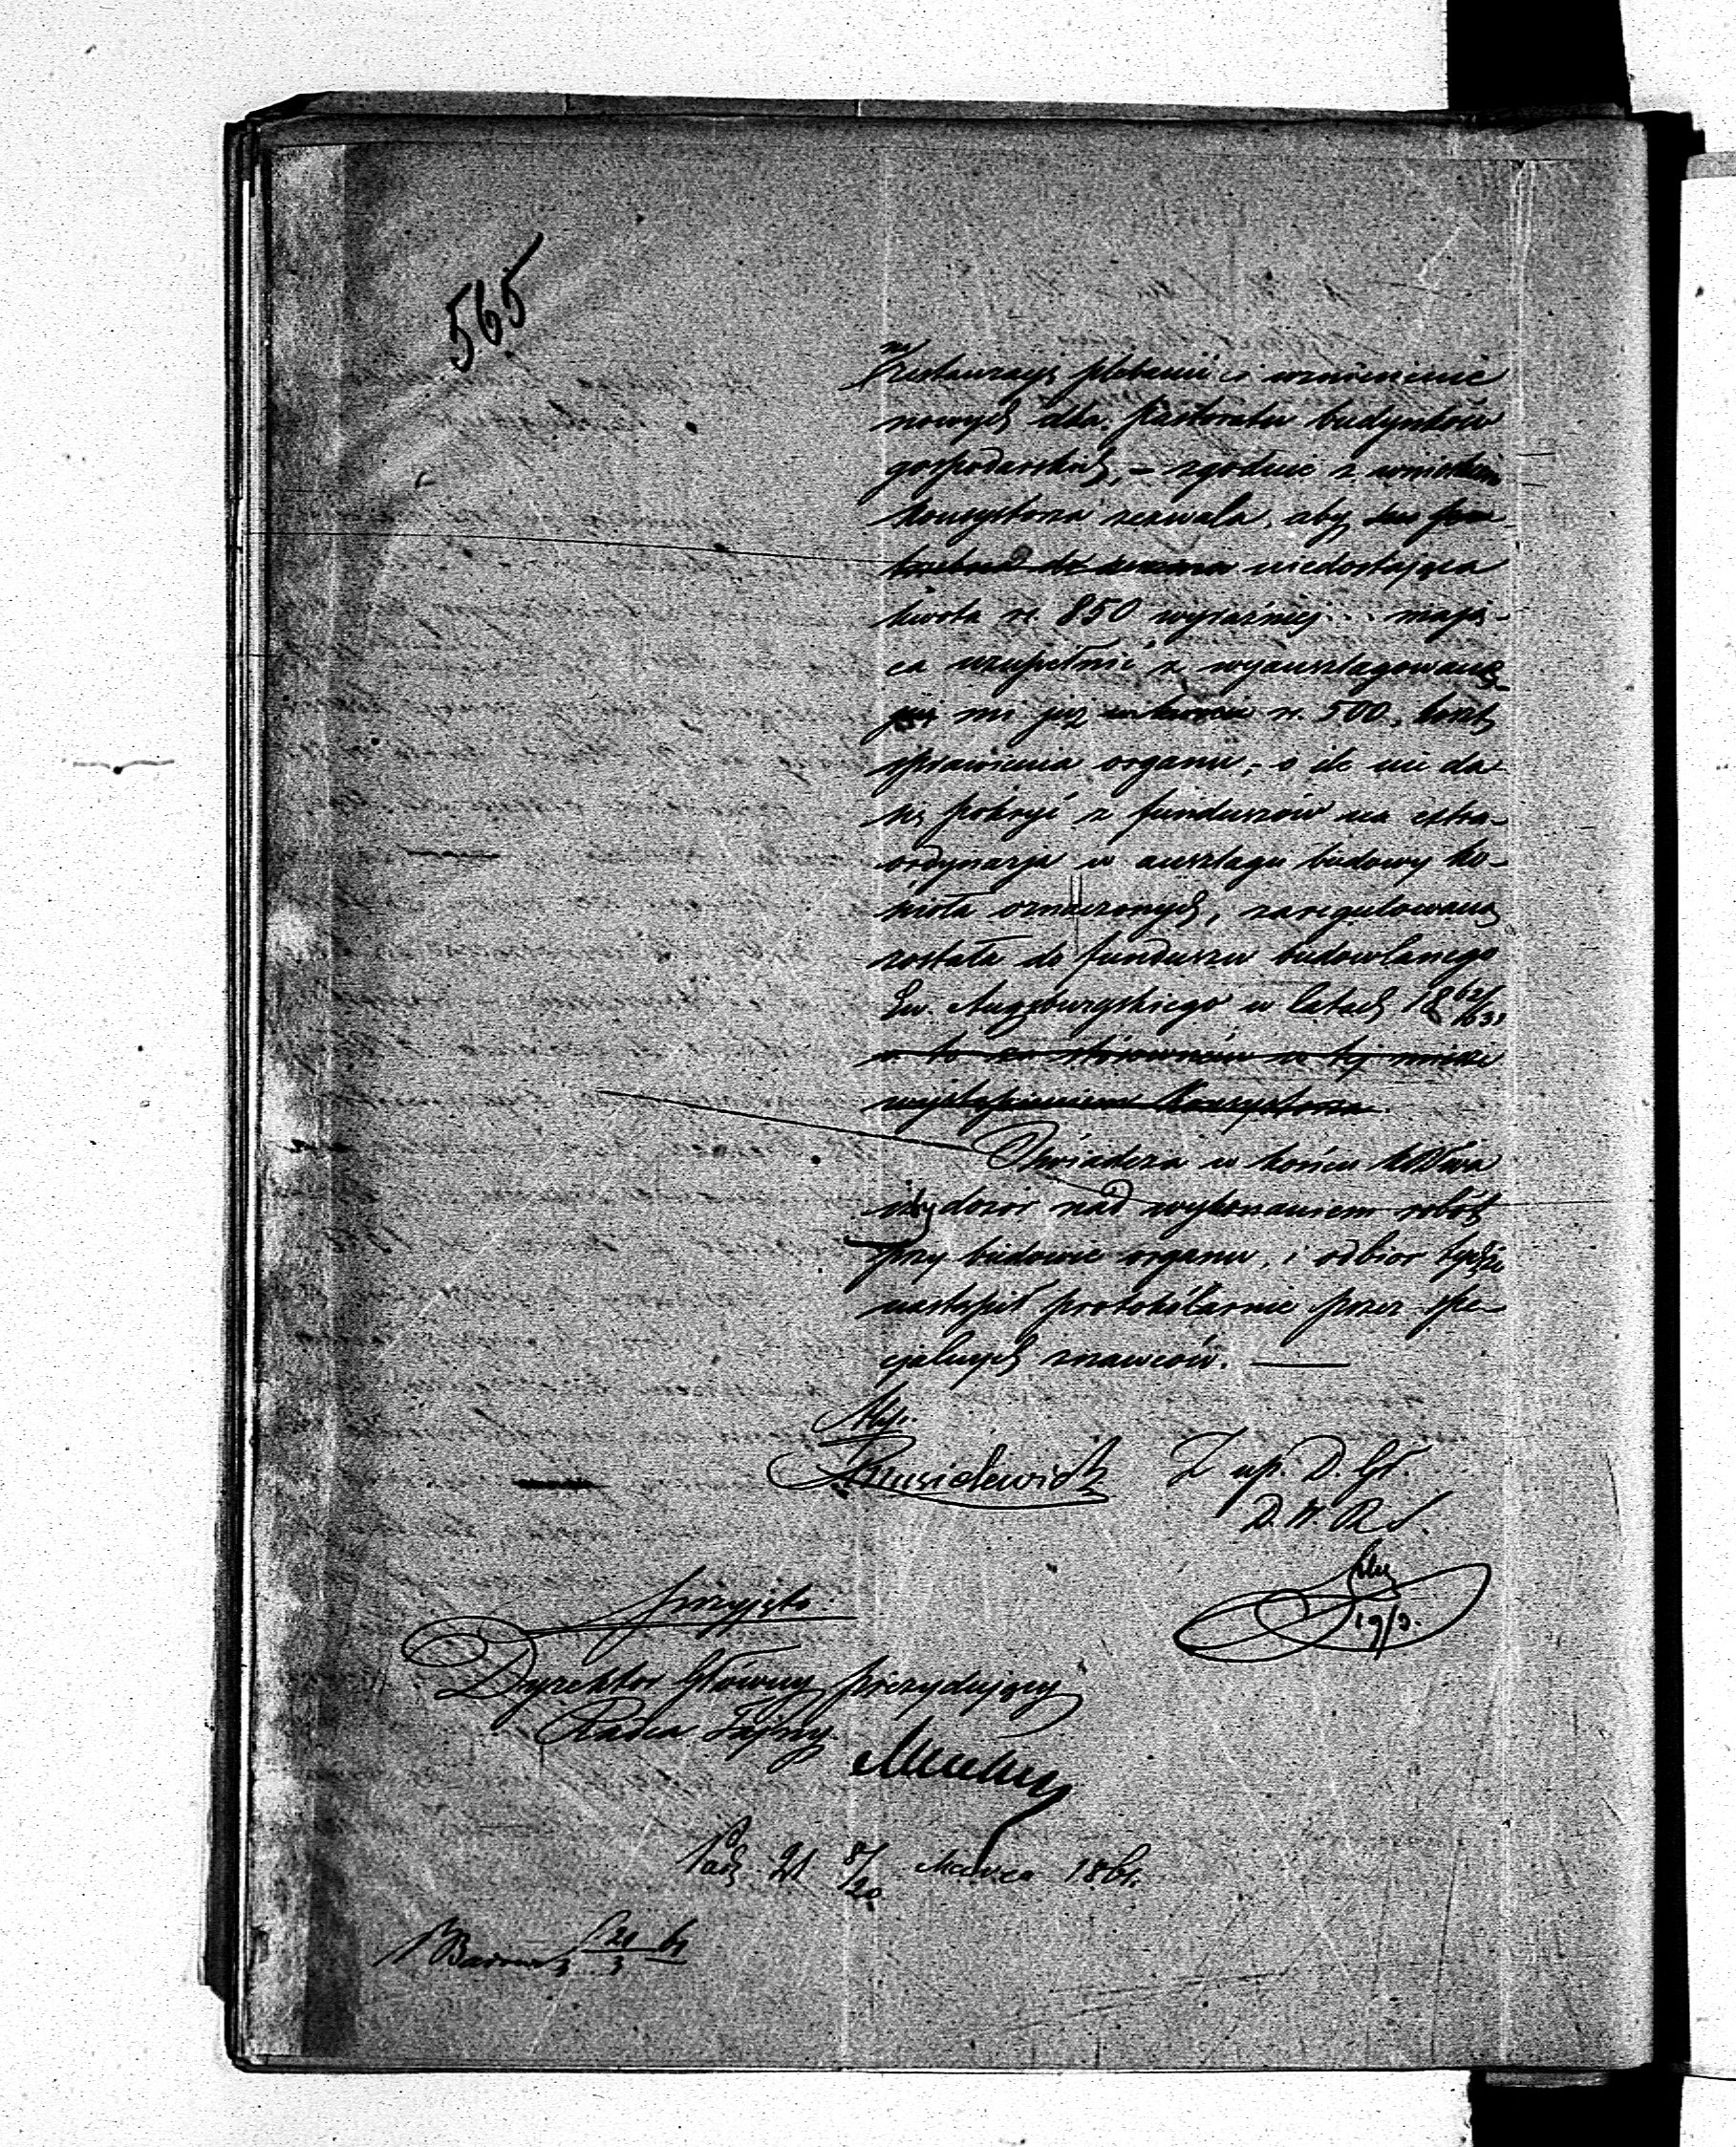 565
na
restauracyę plebanii i wzniesienie
nowych dla Pastoratu budynków
gospodarskich, – zgodnie z wnioskiem
Konsystorza zezwala, aby
niedostająca
kwota rs. 850 wyraźniej mają-
ca uzupełnić z wyauszlagowaną
mi już rs. 500, koszt
sprawienia organu, o ile nie da
się pokryć z funduszów na extra-
ordynarja w auszlagu budowy ko-
ścioła oznaczonych, zaregulowaną
została do funduszu budowlanego
Ew. Augsburgskiego w latach 1862/63,
a to za stosownem w tej mierze
wystąpieniem Konsystorza.
Oświadcza w końcu
aby dozór nad wykonaniem robót
przy budowie organu, i odbiór tychże
nastąpił protokólarnie przez spe-
cyalnych znawców. —
Z up. D. Gł.
D. W.
19/3.
przyjęto
Dyrektor Główny prezydujący
Radca Tajny
21 8/20 Marca 1861.
21/3 61